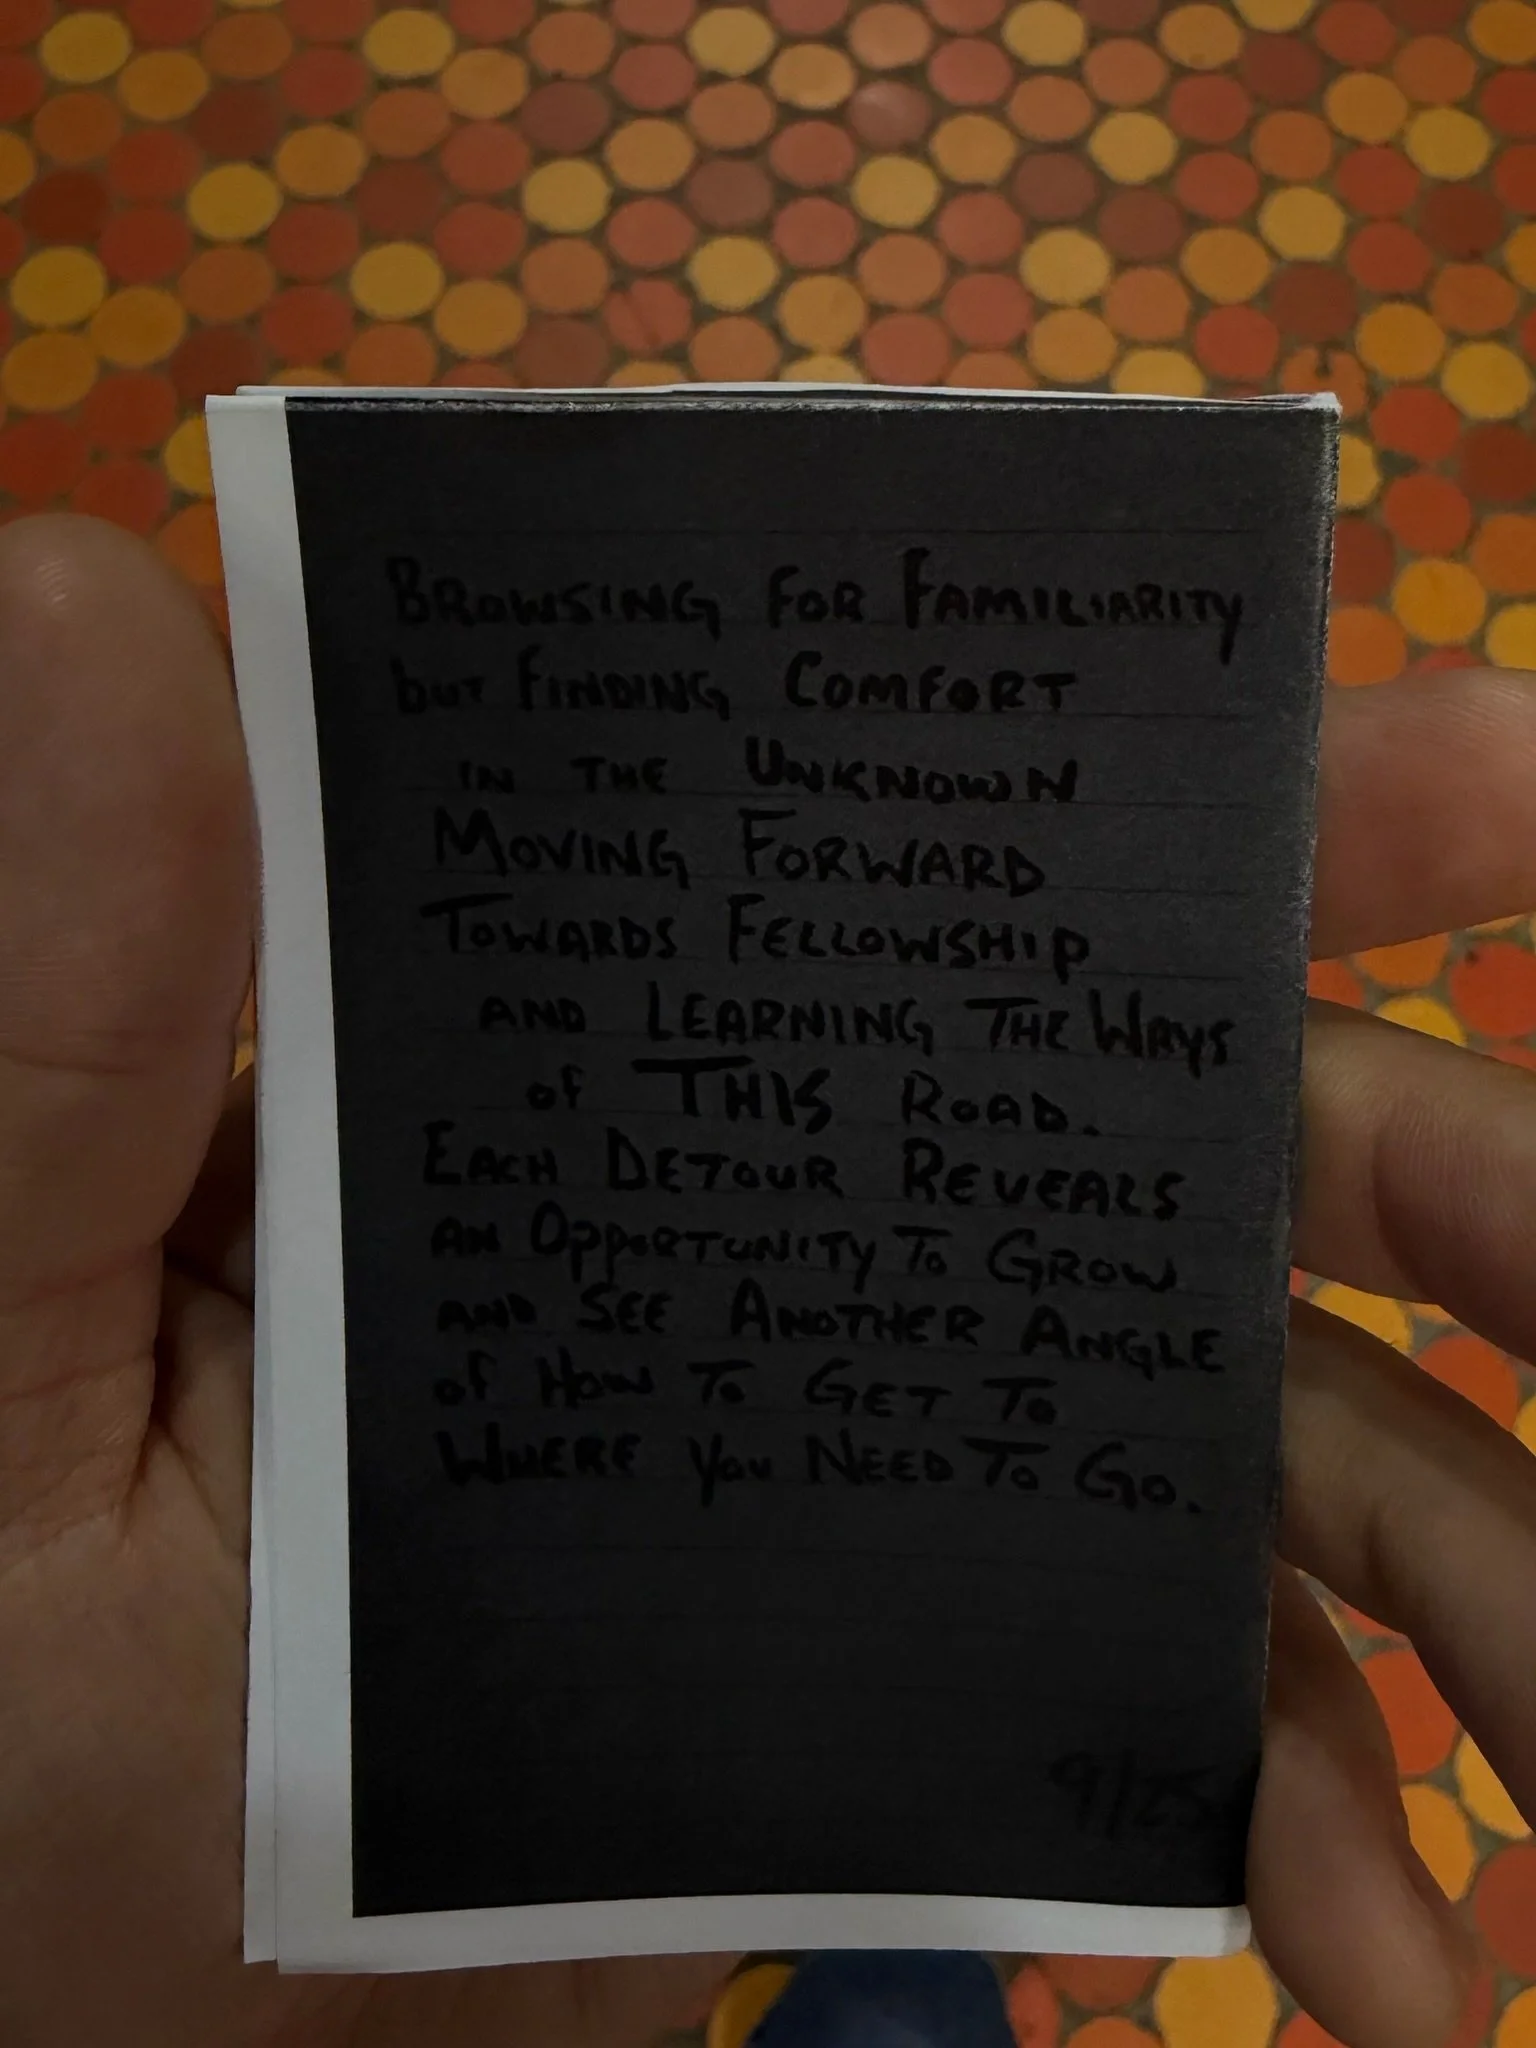 BROWSING FOR FAMILIARITY
but FINDING COMFORT
IN THE UNKNOWN
MOVING FORWARD
TOWARDS FELLOWSHIP
AND LEARNING THE WAYS
of THIS ROAD.
EACH DETOUR REVEALS
AN OppORTUNITY To GROW
AND SEE ANOTHER ANGLE
of How To GET To
WHERE You NEED To Go.
9/25